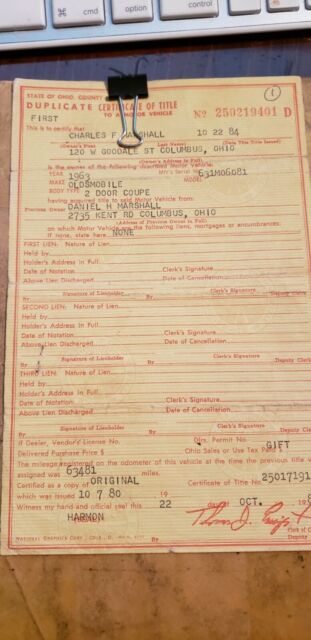 ⌘
cmd
alt
①
STATE OF OHIO, COUNTY
DUPLICATE CERTIFICATE OF TITLE
FIRST TO A MOTOR VEHICLE Nº 250219401 D
This is to certify that
CHARLES F MARSHALL 10 22 84
(Owner's First) Last Name) (Date This Title Issued)
120 W GOODALE ST COLUMBUS, OHIO
(Owner's Address in Full)
is the owner of the following described Motor Vehicle:
YEAR 1963 MFr's Serial No. 631M06081
MAKE OLDSMOBILE MODEL
BODY TYPE 2 DOOR COUPE
having acquired title to said Motor Vehicle from:
Previous Owner DANIEL H MARSHALL
2735 KENT RD COLUMBUS, OHIO
(Address of Previous Owner in Full)
on which Motor Vehicle are the following liens, mortgages or encumbrances:
If none, state here NONE
FIRST LIEN: Nature of Lien
Held by
Holder's Address in Full
Date of Notation Clerk's Signature
Above Lien Discharged Date of Cancellation
Signature of Lienholder Clerk's Signature Deputy
By
SECOND LIEN: Nature of Lien
Held by
Holder's Address in Full
Date of Notation Clerk's Signature
Above Lien Discharged Date of Cancellation
Signature of Lienholder Clerk's Signature Deputy Cler
By
THIRD LIEN: Nature of Lien
Held by
Holder's Address in Full
Date of Notation Clerk's Signature
Above Lien Discharged Date of Cancellation
Signature of Lienholder Clerk's Signature Deputy Cl
By
If Dealer, Vendor's License No. Dlrs. Permit No.
Delivered Purchase Price $ Ohio Sales or Use Tax Paid $ GIFT
The mileage registered on the odometer of this vehicle at the time the previous title w
assigned was 63481 miles.
Certified as a copy of ORIGINAL Certificate of Title No. 25017191
which was issued 10 7 80 19
Witness my hand and official seal this 22 day OCT. 8
HARMON
(SEAL)
By